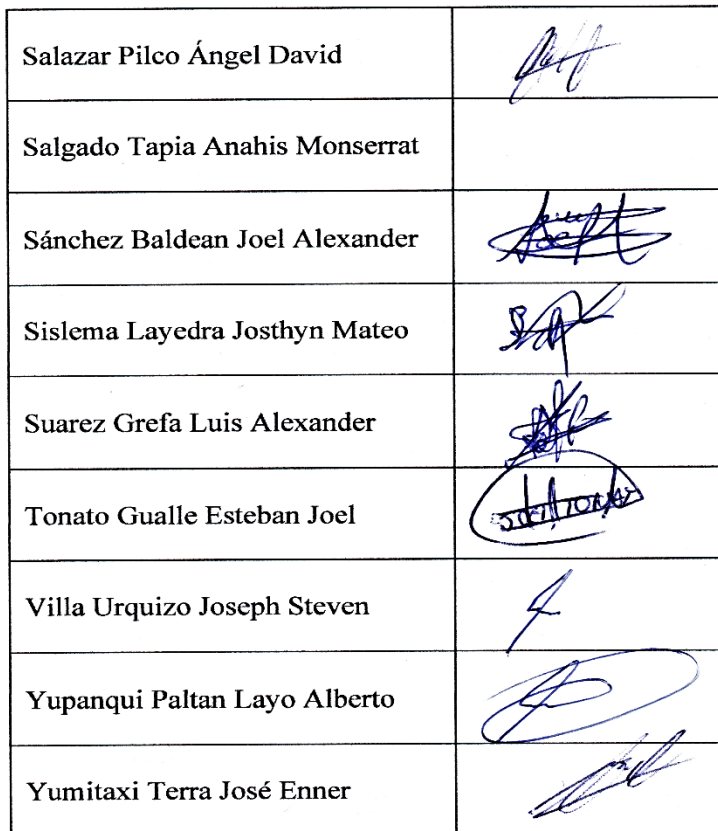 Salazar Pilco Ángel David
Salgado Tapia Anahis Monserrat
Sánchez Baldean Joel Alexander
Sislema Layedra Josthyn Mateo
Suarez Grefa Luis Alexander
Tonato Gualle Esteban Joel
Villa Urquizo Joseph Steven
Yupanqui Paltan Layo Alberto
Yumitaxi Terra José Enner